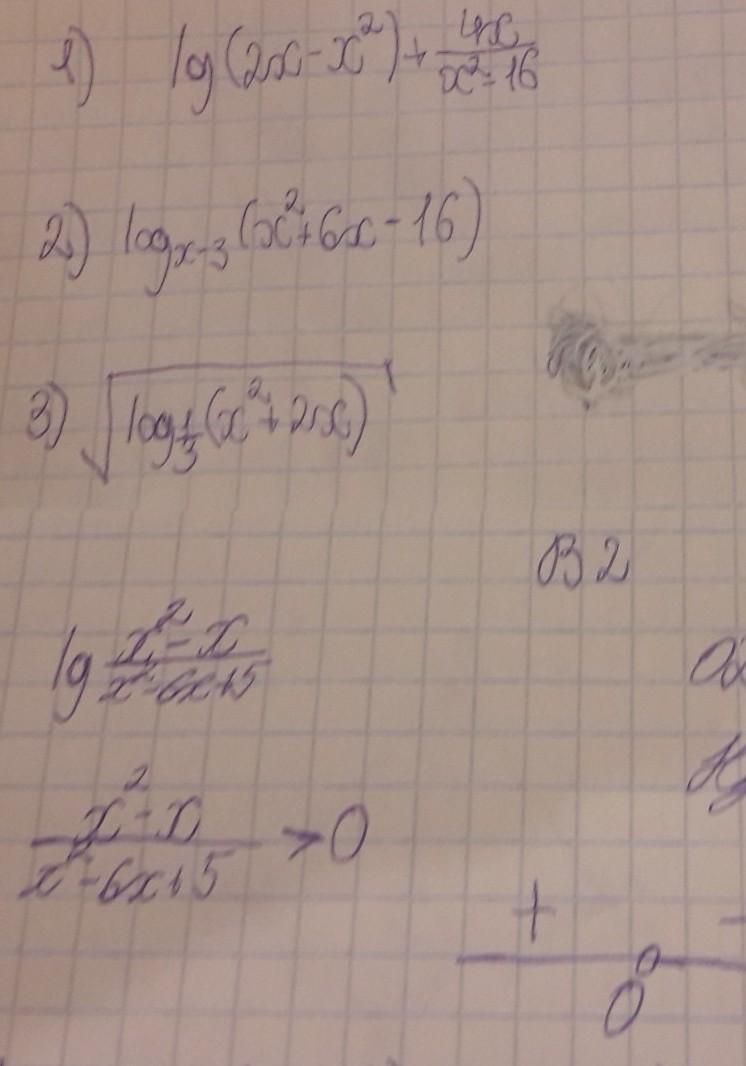 1) lg(2x-x²)+4x/(x²-16)
2) log_{x-3}(x²+6x-16)
3) √(log_{1/3}(x²+2x))
B2
lg (x²-x)/(x²-6x+5)
(x²-x)/(x²-6x+5) >0
+ -
0